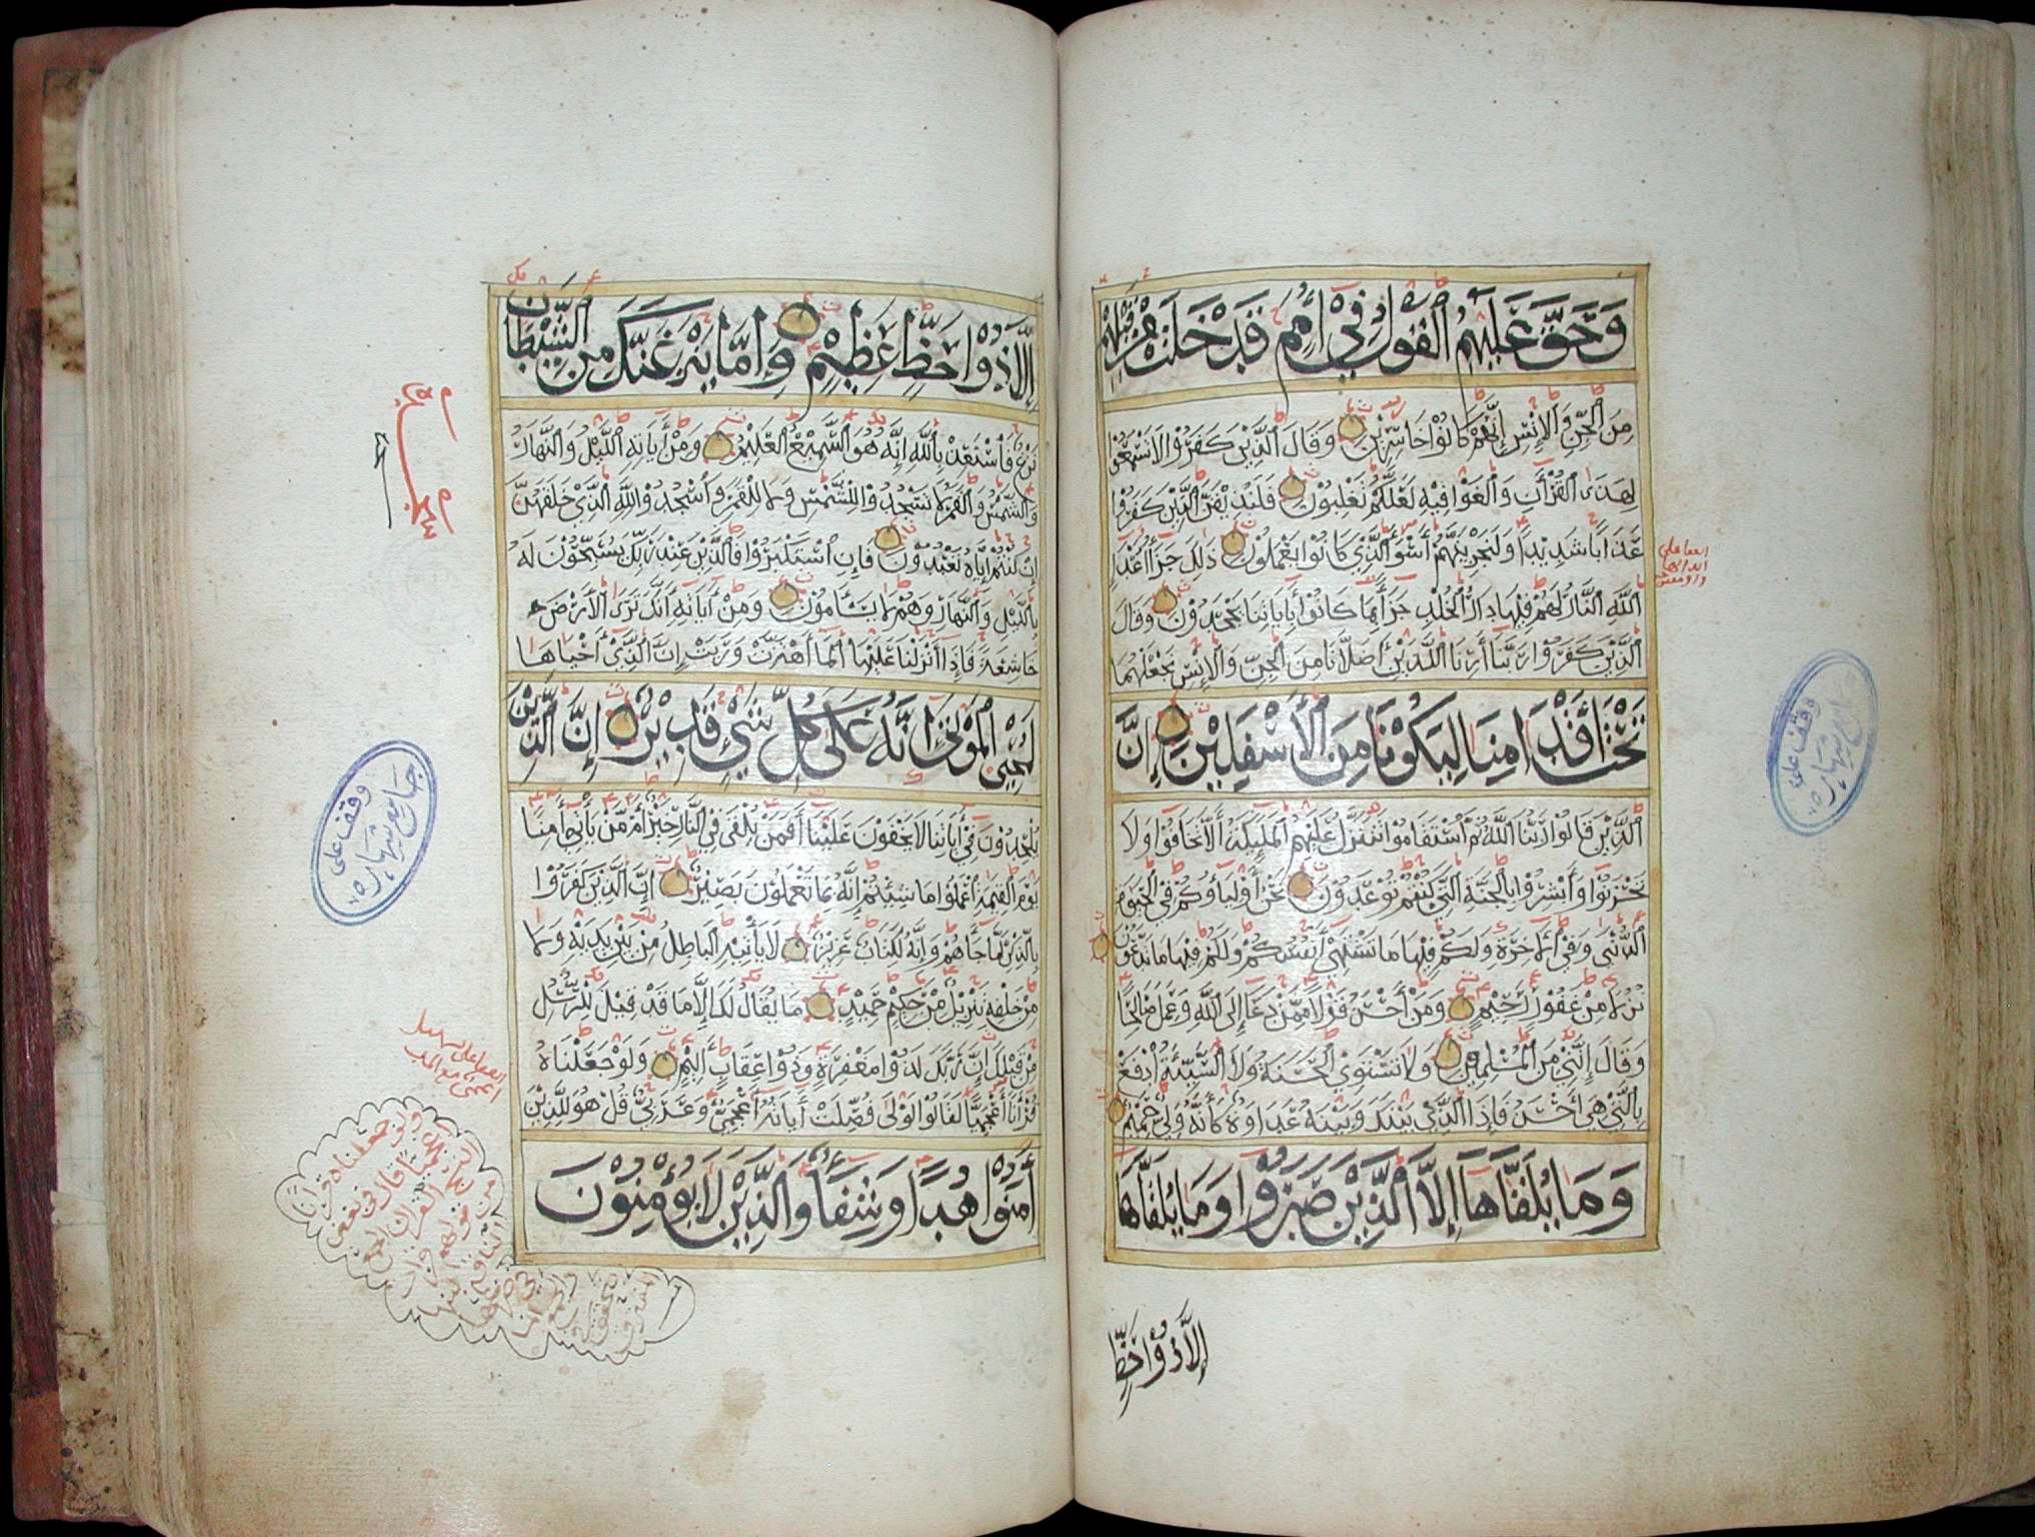 وَحَقَّ عَلَيْهِمُ الْقَوْلُ فِي أُمَمٍ قَدْ خَلَتْ مِنْ قَبْلِهِمْ
مِنَ الْجِنِّ وَالْإِنْسِ إِنَّهُمْ كَانُوا خَاسِرِيْنَ وَقَالَ الَّذِيْنَ كَفَرُوْا لَا تَسْمَعُوْا
لِهَذَا الْقُرْآنِ وَالْغَوْا فِيْهِ لَعَلَّكُمْ تَغْلِبُوْنَ فَلَنُذِيْقَنَّ الَّذِيْنَ كَفَرُوْا
عَذَابًا شَدِيْدًا وَلَنَجْزِيَنَّهُمْ أَسْوَأَ الَّذِي كَانُوْا يَعْمَلُوْنَ ذَلِكَ جَزَاءُ أَعْدَاءِ
اللَّهِ النَّارُ لَهُمْ فِيْهَا دَارُ الْخُلْدِ جَزَاءً بِمَا كَانُوْا بِآيَاتِنَا يَجْحَدُوْنَ وَقَالَ
الَّذِيْنَ كَفَرُوْا رَبَّنَا أَرِنَا اللَّذَيْنِ أَضَلَّانَا مِنَ الْجِنِّ وَالْإِنْسِ نَجْعَلْهُمَا
تَحْتَ أَقْدَامِنَا لِيَكُوْنَا مِنَ الْأَسْفَلِيْنَ إِنَّ
الَّذِيْنَ قَالُوْا رَبُّنَا اللَّهُ ثُمَّ اسْتَقَامُوْا تَتَنَزَّلُ عَلَيْهِمُ الْمَلَئِكَةُ أَلَّا تَخَافُوْا وَلَا
تَحْزَنُوْا وَأَبْشِرُوْا بِالْجَنَّةِ الَّتِي كُنْتُمْ تُوْعَدُوْنَ نَحْنُ أَوْلِيَاؤُكُمْ فِي الْحَيَوةِ
الدُّنْيَى وَفِي الْآخِرَةِ وَلَكُمْ فِيْهَا مَا تَشْتَهِي أَنْفُسُكُمْ وَلَكُمْ فِيْهَا مَا تَدَّعُوْنَ
نُزُلًا مِنْ غَفُوْرٍ رَحِيْمٍ وَمَنْ أَحْسَنُ قَوْلًا مِمَّنْ دَعَا إِلَى اللَّهِ وَعَمِلَ صَالِحًا
وَقَالَ إِنَّنِيْ مِنَ الْمُسْلِمِيْنَ وَلَا تَسْتَوِي الْحَسَنَةُ وَلَا السَّيِّئَةُ ادْفَعْ
بِالَّتِيْ هِيَ أَحْسَنُ فَإِذَا الَّذِي بَيْنَكَ وَبَيْنَهُ عَدَاوَةٌ كَأَنَّهُ وَلِيٌّ حَمِيْمٌ
وَمَا يُلَقَّاهَا إِلَّا الَّذِيْنَ صَبَرُوْا وَمَا يُلَقَّاهَا
إِلَّا ذُوْ حَظٍّ
وقف على
جامع شهاره
إِلَّا ذُوْا حَظٍّ عَظِيْمٍ وَإِمَّا يَنْزَغَنَّكَ مِنَ الشَّيْطَانِ
نَزْغٌ فَاسْتَعِذْ بِاللَّهِ إِنَّهُ هُوَ السَّمِيْعُ الْعَلِيْمُ وَمِنْ آيَاتِهِ اللَّيْلُ وَالنَّهَارُ
وَالشَّمْسُ وَالْقَمَرُ لَا تَسْجُدُوْا لِلشَّمْسِ وَلَا لِلْقَمَرِ وَاسْجُدُوْا لِلَّهِ الَّذِيْ خَلَقَهُنَّ
إِنْ كُنْتُمْ إِيَّاهُ تَعْبُدُوْنَ فَإِنِ اسْتَكْبَرُوْا فَالَّذِيْنَ عِنْدَ رَبِّكَ يُسَبِّحُوْنَ لَهُ
بِاللَّيْلِ وَالنَّهَارِ وَهُمْ لَا يَسْأَمُوْنَ وَمِنْ آيَاتِهِ أَنَّكَ تَرَى الْأَرْضَ
خَاشِعَةً فَإِذَا أَنْزَلْنَا عَلَيْهَا الْمَاءَ اهْتَزَّتْ وَرَبَتْ إِنَّ الَّذِيْ أَحْيَاهَا
لَمُحْيِ الْمَوْتَى إِنَّهُ عَلَى كُلِّ شَيْءٍ قَدِيْرٌ إِنَّ الَّذِيْنَ
يُلْحِدُوْنَ فِيْ آيَاتِنَا لَا يَخْفَوْنَ عَلَيْنَا أَفَمَنْ يُلْقَى فِي النَّارِ خَيْرٌ أَمْ مَنْ يَأْتِيْ آمِنًا
يَوْمَ الْقِيَمَةِ اعْمَلُوْا مَا شِئْتُمْ إِنَّهُ بِمَا تَعْمَلُوْنَ بَصِيْرٌ إِنَّ الَّذِيْنَ كَفَرُوْا
بِالذِّكْرِ لَمَّا جَاءَهُمْ وَإِنَّهُ لَكِتَابٌ عَزِيْزٌ لَا يَأْتِيْهِ الْبَاطِلُ مِنْ بَيْنِ يَدَيْهِ وَلَا
مِنْ خَلْفِهِ تَنْزِيْلٌ مِنْ حَكِيْمٍ حَمِيْدٍ مَا يُقَالُ لَكَ إِلَّا مَا قَدْ قِيْلَ لِلرُّسُلِ
مِنْ قَبْلِكَ إِنَّ رَبَّكَ لَذُوْا مَغْفِرَةٍ وَذُوْا عِقَابٍ أَلِيْمٍ وَلَوْ جَعَلْنَاهُ
قُرْآنًا أَعْجَمِيًّا لَقَالُوْا لَوْلَا فُصِّلَتْ آيَاتُهُ أَعْجَمِيٌّ وَعَرَبِيٌّ قُلْ هُوَ لِلَّذِيْنَ
آمَنُوْا هُدًا وَشِفَاءٌ وَالَّذِيْنَ لَا يُؤْمِنُوْنَ
وقف على
جامع شهاره
ولو جعلناه قرآنا